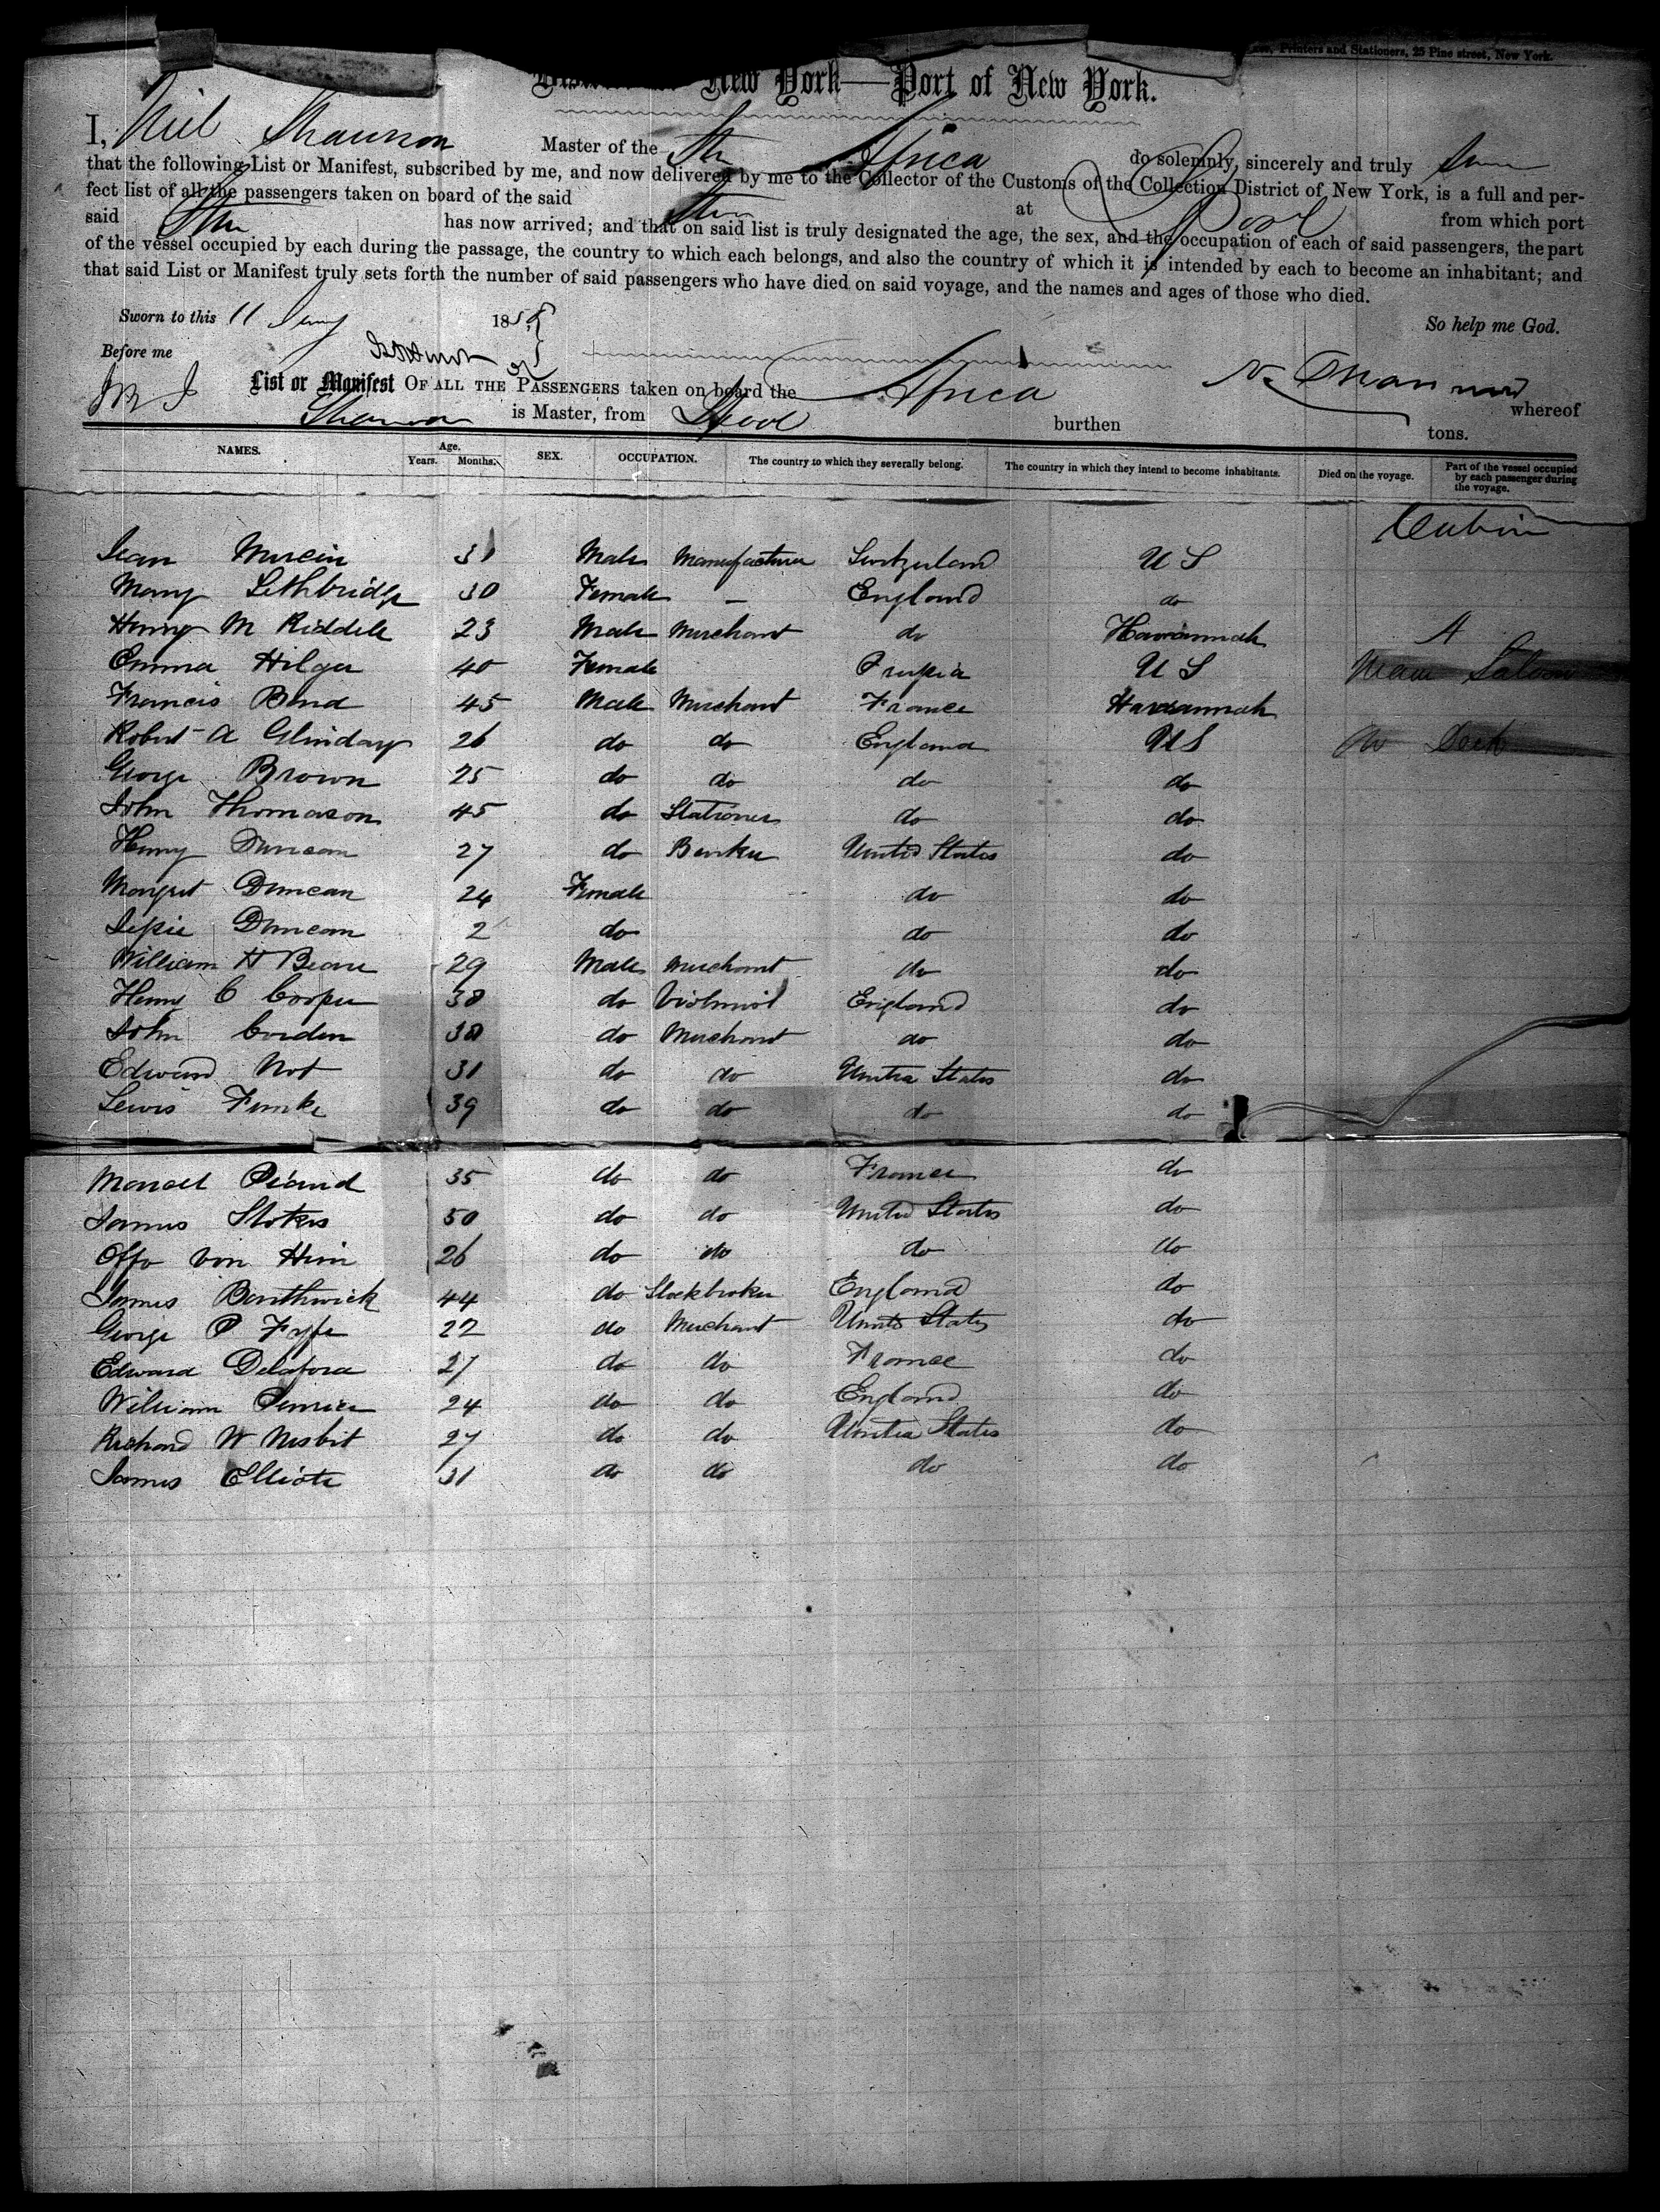 Printers and Stationers, 25 Pine street, New York.
New York—Port of New York.
I, Neil Shannon Master of the Str Africa do solemnly, sincerely and truly
that the following List or Manifest, subscribed by me, and now delivered by me to the Collector of the Customs of the Collection District of New York, is a full and per-
fect list of all the passengers taken on board of the said Str at L'Pool from which port
said Str has now arrived; and that on said list is truly designated the age, the sex, and the occupation of each of said passengers, the part
of the vessel occupied by each during the passage, the country to which each belongs, and also the country of which it is intended by each to become an inhabitant; and
that said List or Manifest truly sets forth the number of said passengers who have died on said voyage, and the names and ages of those who died.
Sworn to this 11 185 So help me God.
Before me
List or Manifest OF ALL THE PASSENGERS taken on board the Africa whereof
Shannon is Master, from L'pool burthen tons.
NAMES. Age. Years. Months. SEX. OCCUPATION. The country to which they severally belong. The country in which they intend to become inhabitants. Died on the voyage. Part of the vessel occupied by each passenger during the voyage.
Jean 31 Male Manufacturer Switzerland U S
Mary Lethbridge 30 Female — England do
Henry M Riddell 23 Male Merchant do Havannah A
Emma Hilger 40 Female Prussia U S Main Saloon
Francis Bond 45 Male Merchant France Havannah
Robert A 26 do do England US Deck
George Brown 25 do do do do
John Thomason 45 do Stationer do do
Henry Duncan 27 do Banker United States do
Margret Duncan 24 Female do do
Jessie Duncan 2 do do do
William H 29 Male Merchant do do
Henry C Cooper 38 do Violinist England do
John Corden 38 do Merchant do do
Edward Not 31 do do United States do
Lewis Funke 39 do do do do
35 do do France do
James Stokes 50 do do United States do
von 26 do do do do
James Borthwick 44 do Stockbroker England do
George P Fyfe 22 do Merchant United States do
Edward 27 do do France do
William 24 do do England do
Richard W Nisbit 27 do do United States do
James Elliott 31 do do do do